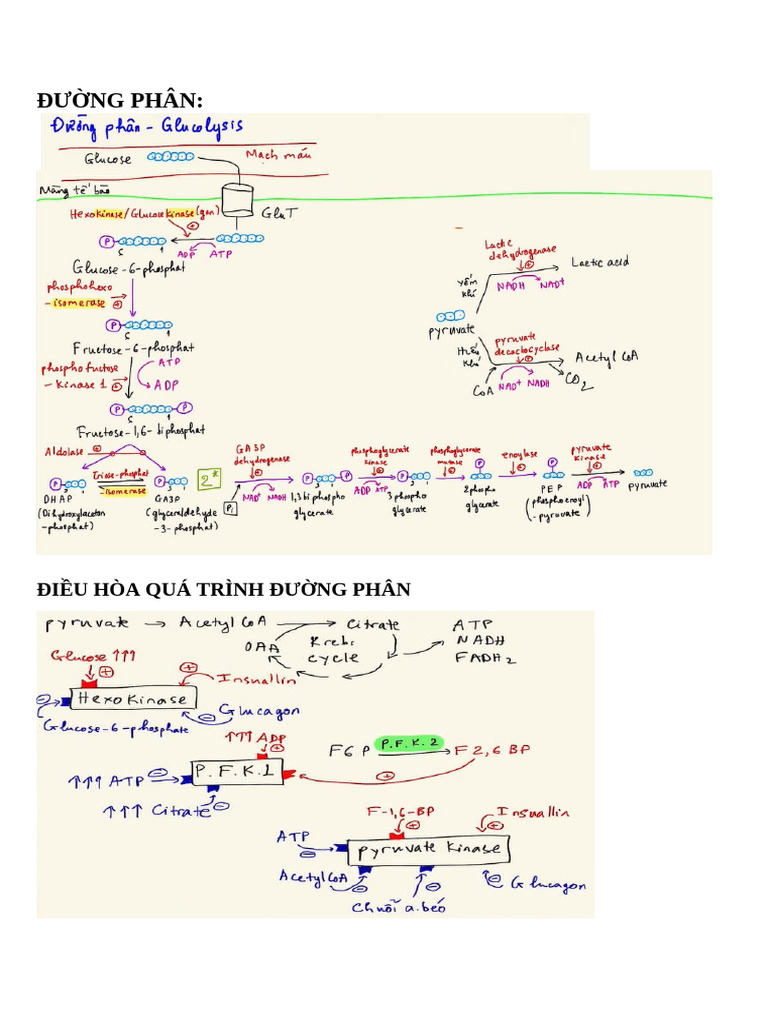 ĐƯỜNG PHÂN:
Đường phân - Glucolysis
Glucose
Mạch máu
Màng tế bào
GluT
Hexokinase/Glucosekinase (gan)
P
6 1
ADP ATP
Glucose-6-phosphat
phosphohexo
-isomerase
P
6 1
Fructose-6-phosphat
phosphofuctose
-kinase 1
ATP
ADP
P P
6 1
Fructose-1,6-biphosphat
Aldolase
P
DHAP
(Dihydroxlaceton
-phosphat)
Triose-phosphat
-isomerase
P
3 1
GA3P
(glyceraldehyde
-3-phosphat)
2*
GA3P
dehydrogenase
Pi
NAD+ NADH
P P
3 1
1,3 biphospho
glycerate
phosphoglycerate
kinase
ADP ATP
P
3 1
3 phospho
glycerate
phosphoglycerate
mutase
P
2 phospho
glycerate
enoylase
P
PEP
(phosphoenoyl
-pyruvate)
pyruvate
kinase
ADP ATP
pyruvate
Lactic
dehydrogenase
Lactic acid
yếm
khí
NADH NAD+
pyruvate
Hiếu
khí
pyruvate
decactocyclase
Acetyl CoA
CoA
NAD+ NADH
CO2
ĐIỀU HÒA QUÁ TRÌNH ĐƯỜNG PHÂN
pyruvate → Acetyl CoA → Citrate
OAA
Krebs
cycle
ATP
NADH
FADH2
Glucose ↑↑↑
Insuallin
Hexokinase
Glucagon
Glucose-6-phosphate
↑↑↑ ADP
F6P
P.F.K.2
F2,6 BP
P.F.K.1
↑↑↑ ATP
↑↑↑ Citrate
F-1,6-BP
Insuallin
ATP
pyruvate kinase
Acetyl CoA
Glucagon
Chuỗi a.béo